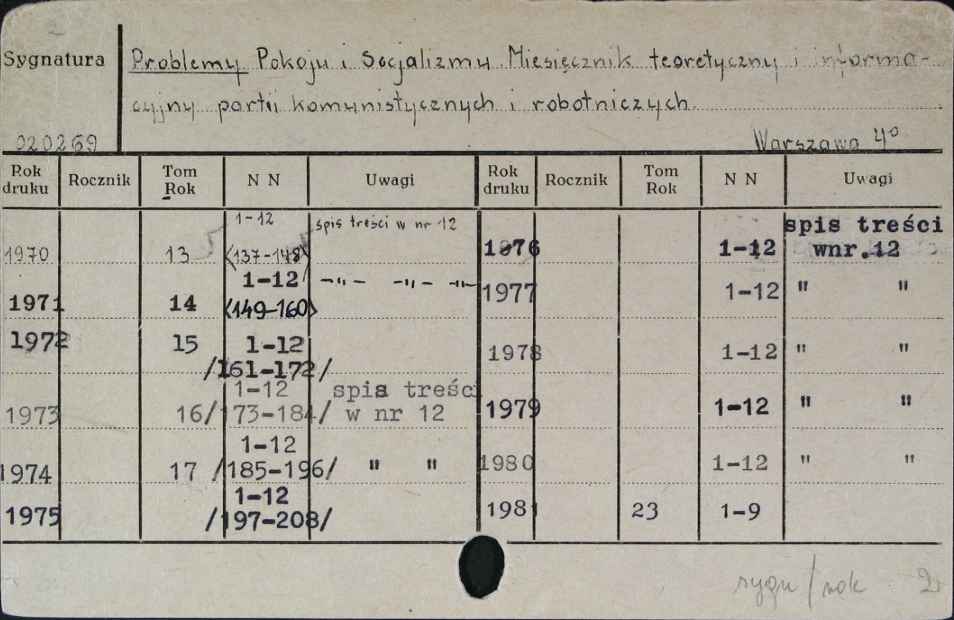 Sygnatura
Problemy Pokoju i Socjalizmu. Miesięcznik teoretyczny i informa-
cyjny partii komunistycznych i robotniczych.
020269 Warszawa 4°
Rok druku Rocznik Tom Rok N N Uwagi Rok druku Rocznik Tom Rok N N Uwagi
1970 13 1-12 <137-148> spis treści w nr 12
1971 14 1-12 <149-160> -"- -"- -"-
1972 15 1-12 /161-172/
1973 16 1-12 /173-184/ spis treści w nr 12
1974 17 1-12 /185-196/ " "
1975 1-12 /197-208/
1976 1-12 spis treści wnr.12
1977 1-12 " "
1978 1-12 " "
1979 1-12 " "
1980 1-12 " "
1981 23 1-9
sygn/rok 2